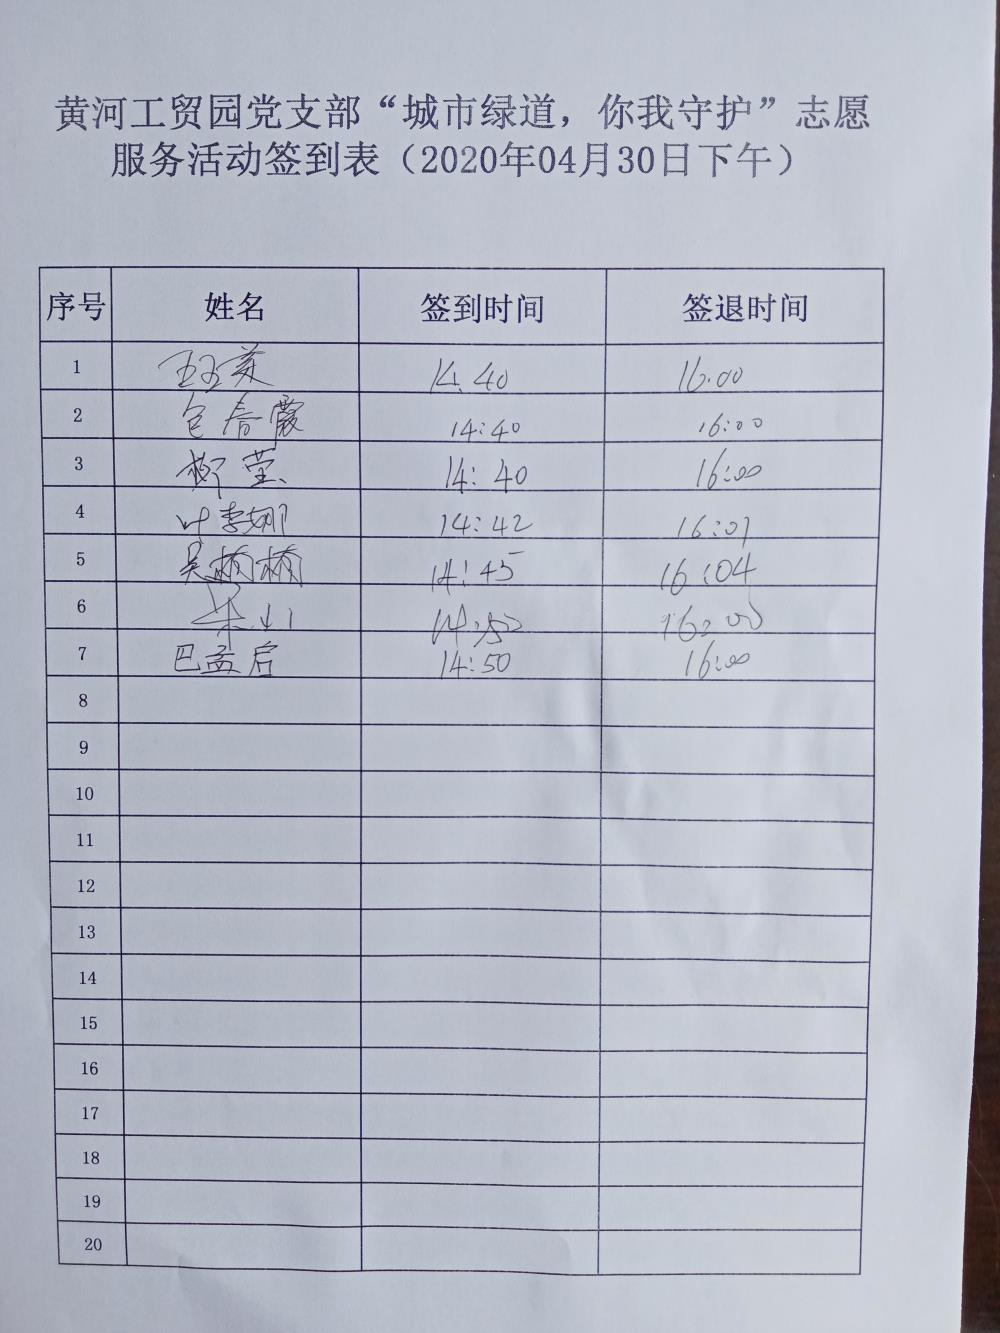 黄河工贸园党支部“城市绿道，你我守护”志愿
服务活动签到表（2020年04月30日下午）
序号 姓名 签到时间 签退时间
1 王玉英 14.40 16.00
2 包春霞 14:40 16:00
3 柳莹 14:40 16:00
4 叶李娜 14:42 16:01
5 吴楠楠 14:45 16:04
6 14:50 16:00
7 巴孟启 14:50 16:00
8
9
10
11
12
13
14
15
16
17
18
19
20